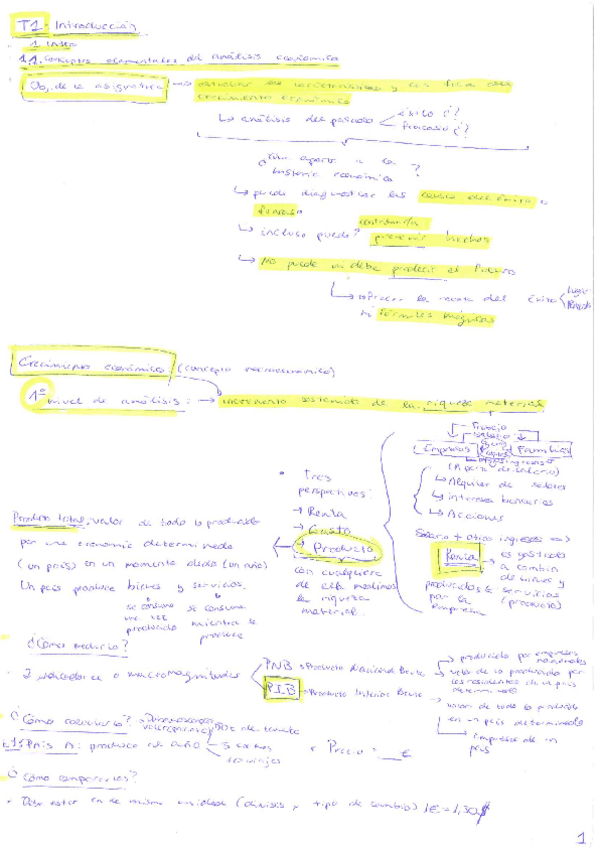 T1. Introducción
1. Intro
1.1. Conceptos elementales del análisis económico
Obj. de la asignatura → estudiar las características y las
crecimiento económico
↳ análisis del pasado éxito ¿?
fracaso ¿?
¿Qué aporta a la ?
historia económica
↳ puede diagnosticar las causas del éxito o
fracaso
↳ incluso puede? contribuir a
prevenir hechos
↳ No puede ni debe predecir el Futuro
↳ la receta del éxito lugar
ni fórmulas mágicas
Crecimiento económico (concepto macroeconómico)
1º nivel de análisis: → incremento sostenido de la riqueza material
Precio
Salario
Empresas Familias
(A parte de salario)
↳ Alquiler de
↳ intereses bancarios
↳ Acciones
• Tres
perspectivas:
→ Renta
→ Gasto
→ Producto
con cualquiera
de ellas medimos
la riqueza
material.
Salario + otros ingresos =>
Renta es gastada
a cambio
de bienes y
servicios
(producto)
producidos
por la
empresa
Producto total: valor de todo lo producido
por una economía determinada
(un país) en un momento dado (un año)
Un país produce bienes y servicios.
se consume se consume
una vez
producido mientras se
produce
¿Cómo medirlo?
• 2 indicadores o macromagnitudes PNB → Producto Nacional Bruto
→ producido por empresas
nacionales
valor de lo producido por
los residentes de un país
determinado
PIB → Producto Interior Bruto
valor de todo lo producido
en un país determinado
empresas de un
país
¿Cómo calcularlo?
País A: produce ese año 5 coches
naranjas
x Precio = __ €
¿Cómo compararlos?
• Debe estar en la misma unidad (divisis, tipo de cambio) 1€ = 1,30$
1